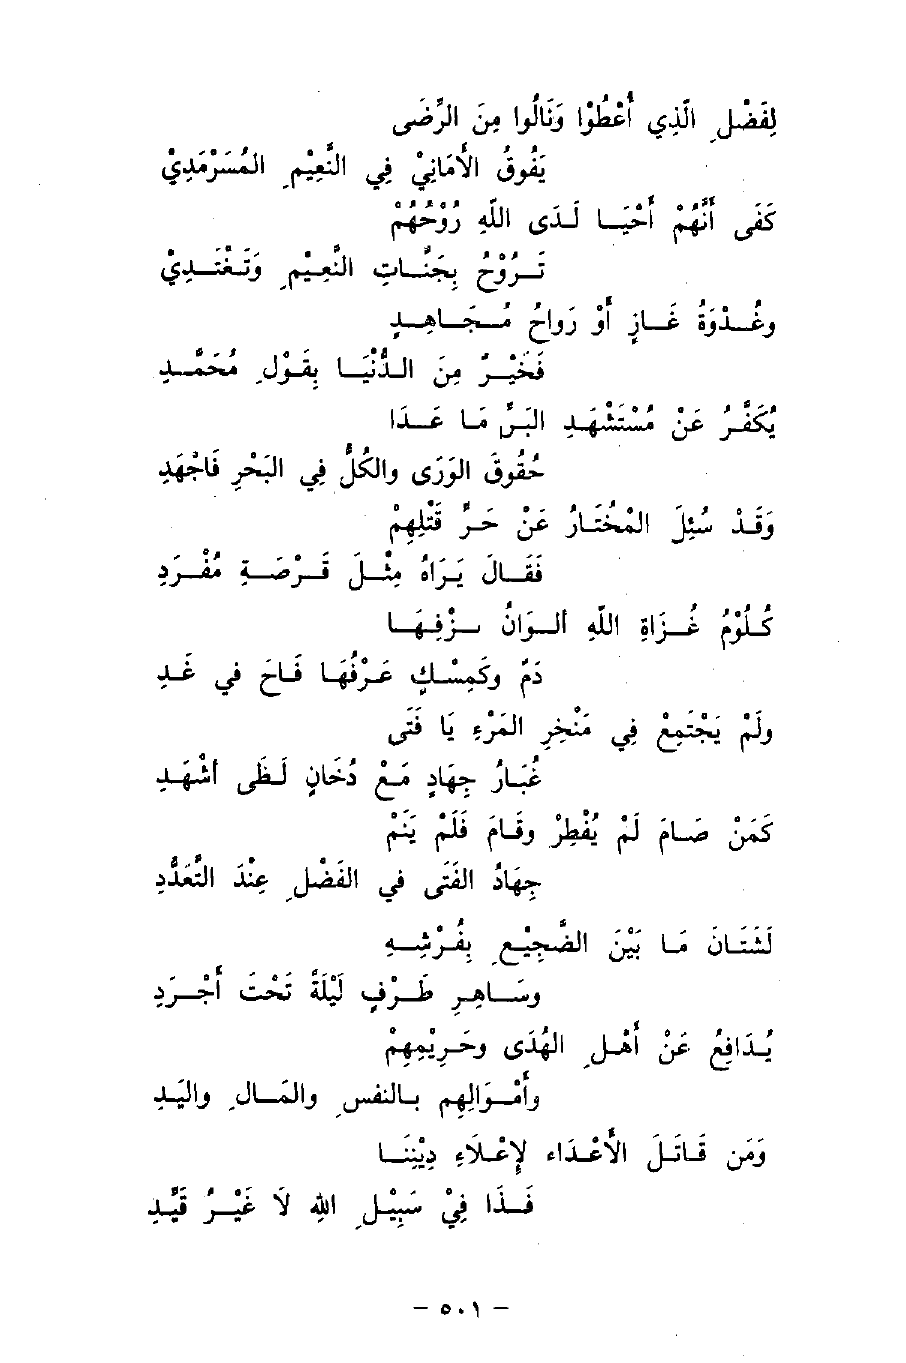 لِفَضْلِ الَّذِي أُعْطُوْا وَنَالُوا مِنَ الرِّضَى
يَفُوقُ الأَمَانِيْ فِي النَّعِيْمِ المُسَرْمَدِيْ
كَفَى أَنَّهُمْ أَحْيَا لَدَى اللهِ رُوْحُهُمْ
تَرُوْحُ بِجَنَّاتِ النَّعِيْمِ وَتَغْتَدِيْ
وغُدْوَةُ غَازٍ أَوْ رَواحُ مُجَاهِدٍ
فَخَيْرٌ مِنَ الدُّنْيَا بِقَوْلِ مُحَمَّدِ
يُكَفَّرُ عَنْ مُسْتَشْهَدِ البَرِّ مَا عَدَا
حُقُوقَ الوَرَى والكُلُّ فِي البَحْرِ فَاجْهَدِ
وَقَدْ سُئِلَ المُخْتَارُ عَنْ حَرِّ قَتْلِهِمْ
فَقَالَ يَرَاهُ مِثْلَ قَرْصَةِ مُفْرَدِ
كُلُوْمُ غُزَاةِ اللهِ أَلوَانُ نَزْفِهَا
دَمٌ وكَمِسْكٍ عَرْفُهَا فَاحَ في غَدِ
ولَمْ يَجْتَمِعْ فِي مَنْخِرِ المَرْءِ يَا فَتَى
غُبَارُ جِهَادٍ مَعْ دُخَانِ لَظَى اشْهَدِ
كَمَنْ صَامَ لَمْ يُفْطِرْ وقَامَ فَلَمْ يَنَمْ
جِهَادُ الفَتَى في الفَضْلِ عِنْدَ التَّعَدُّدِ
لَشَتَانَ مَا بَيْنَ الضَّجِيْعِ بِفُرْشِهِ
وسَاهِرِ طَرْفٍ لَيْلَةً تَحْتَ أَجْرَدِ
يُدَافِعُ عَنْ أَهْلِ الهُدَى وحَرِيْمِهِمْ
وأَمْوَالِهِم بالنفسِ والمَالِ واليَدِ
وَمَن قَاتَلَ الأَعْدَاء لإِعْلَاءِ دِيْنِنَا
فَذَا فِيْ سَبِيْلِ اللهِ لَا غَيْرُ قَيِّدِ
- ٥٠١ -